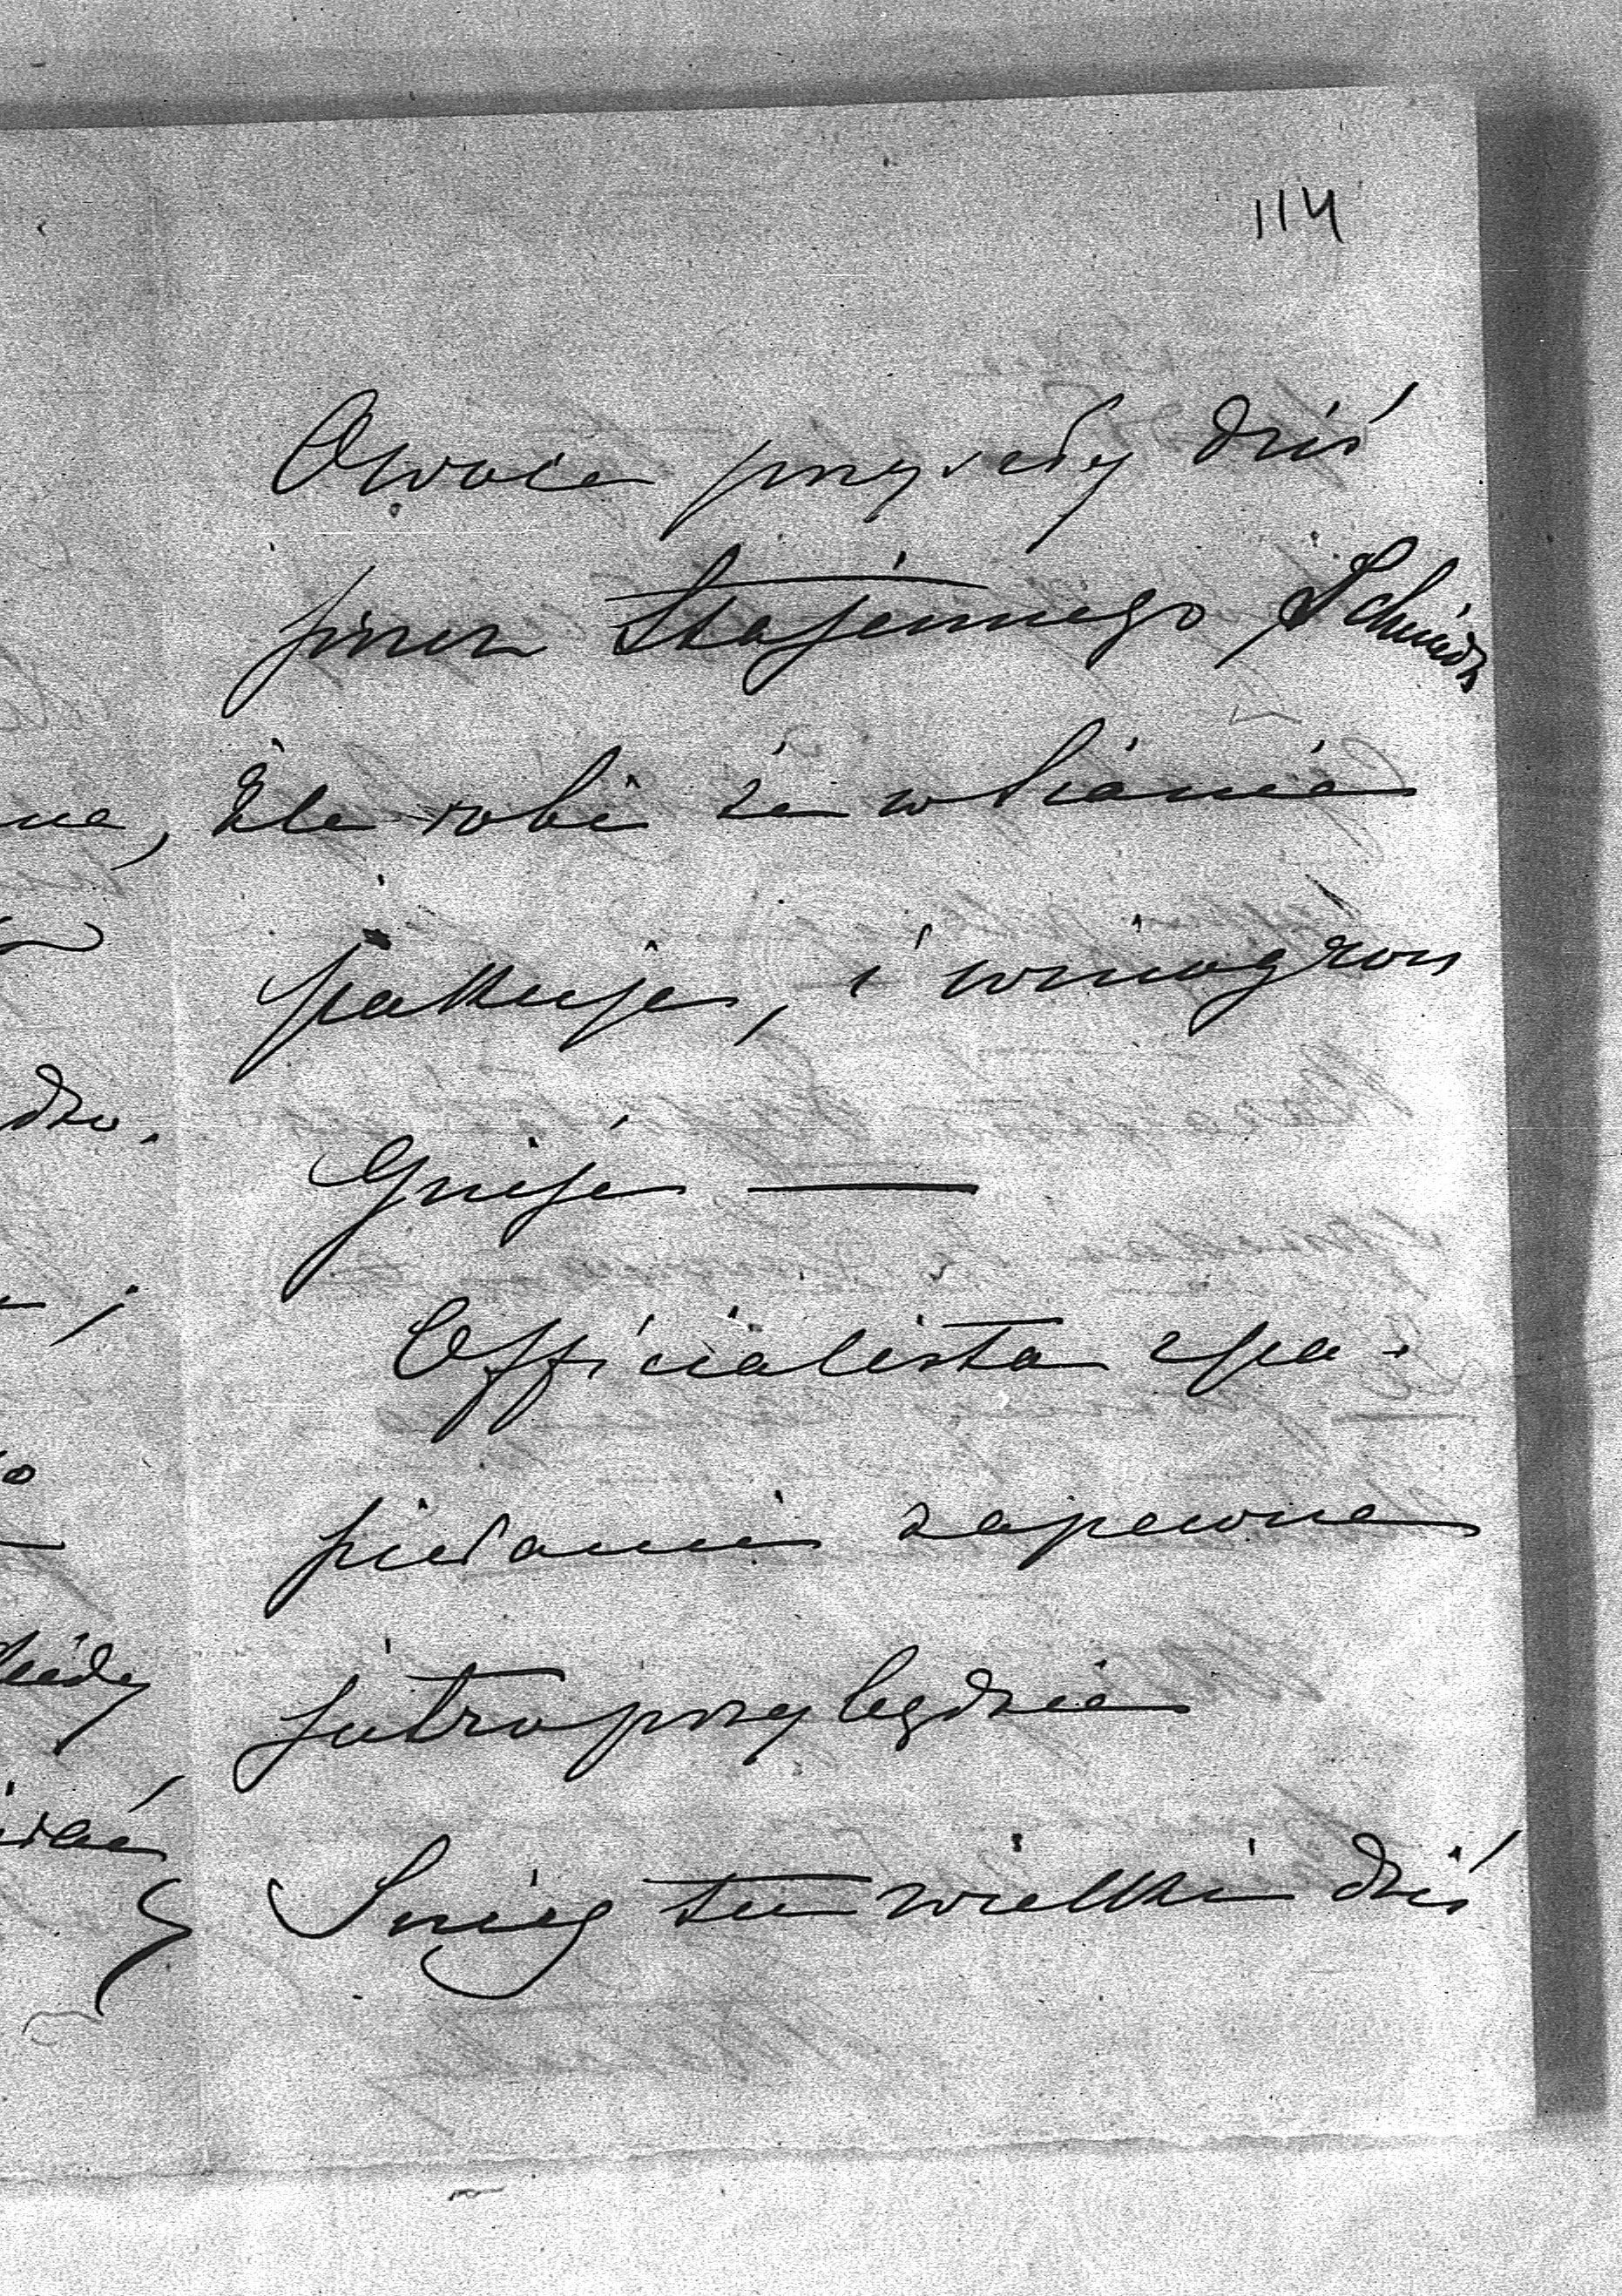 114
Owoce przyszły dziś
przez Stajennego, Schmidt
źle robi że w sianie
pakuje, i winogron
gnije —
Officialista z pa-
pierami zapewne
jutro przybędzie
Snieg tu wielki dziś